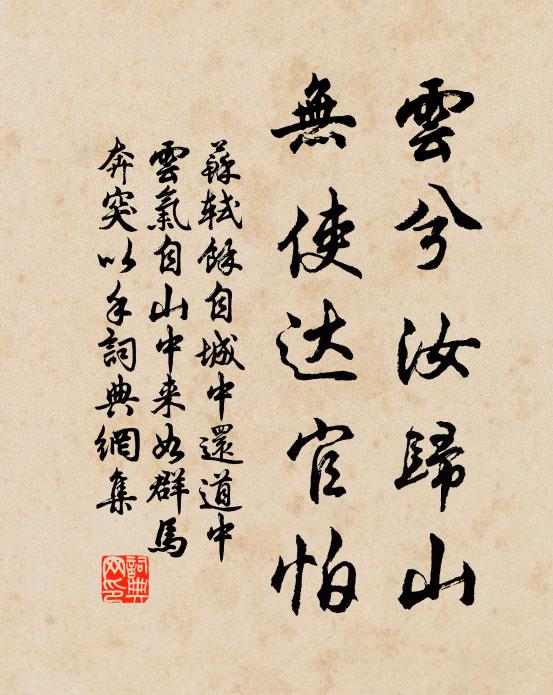 雲兮汝歸山
無使达官怕
蘇軾餘自城中還道中
雲氣自山中来如群馬
奔突以手詞典網集
詞典
网印